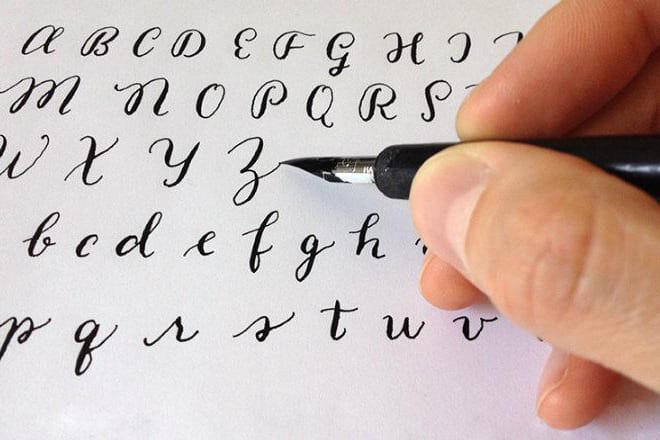 A B C D E F G H I
M N O P Q R S
W X Y Z
b c d e f g h
p q r s t u v